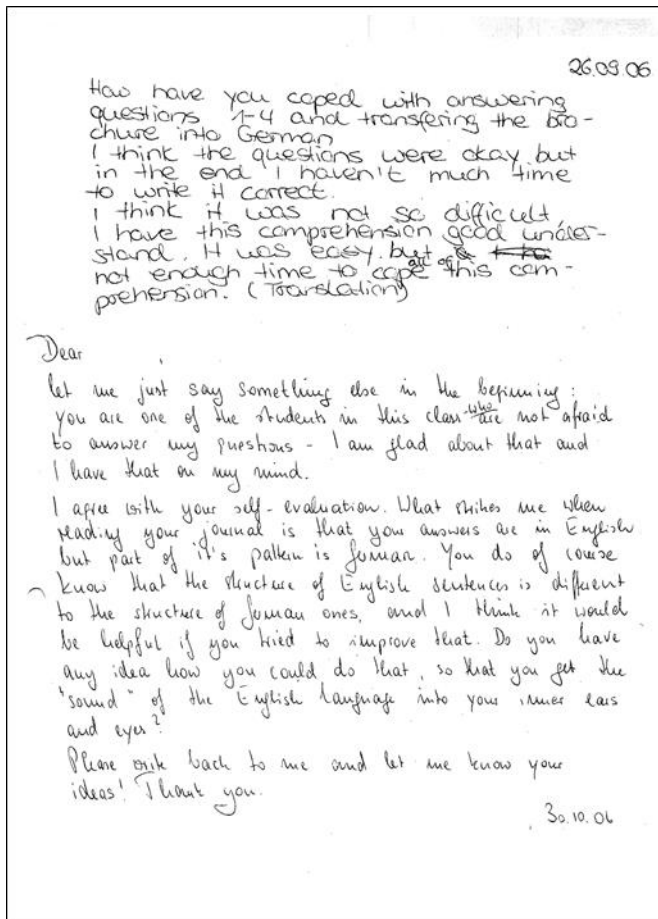 26.09.06
How have you coped with answering
questions 1-4 and transfering the bro-
chure into German
I think the questions were okay but
in the end I haven't much time
to write it correct.
I think it was not so difficult,
I have this comprehension good under-
stand. It was easy but
not enough time to cope this com-
prehension. (Translation)
Dear ,
let me just say something else in the beginning:
You are one of the students in this class who are not afraid
to answer my questions - I am glad about that and
I have that on my mind.
I agree with your self-evaluation. What strikes me when
reading your journal is that your answers are in English
but part of it's pattern is German. You do of course
know that the structure of English sentences is different
to the structure of German ones, and I think it would
be helpful if you tried to improve that. Do you have
any idea how you could do that, so that you get the
"sound" of the English language into your inner ears
and eyes?
Please write back to me and let me know your
ideas! Thank you.
30.10.06